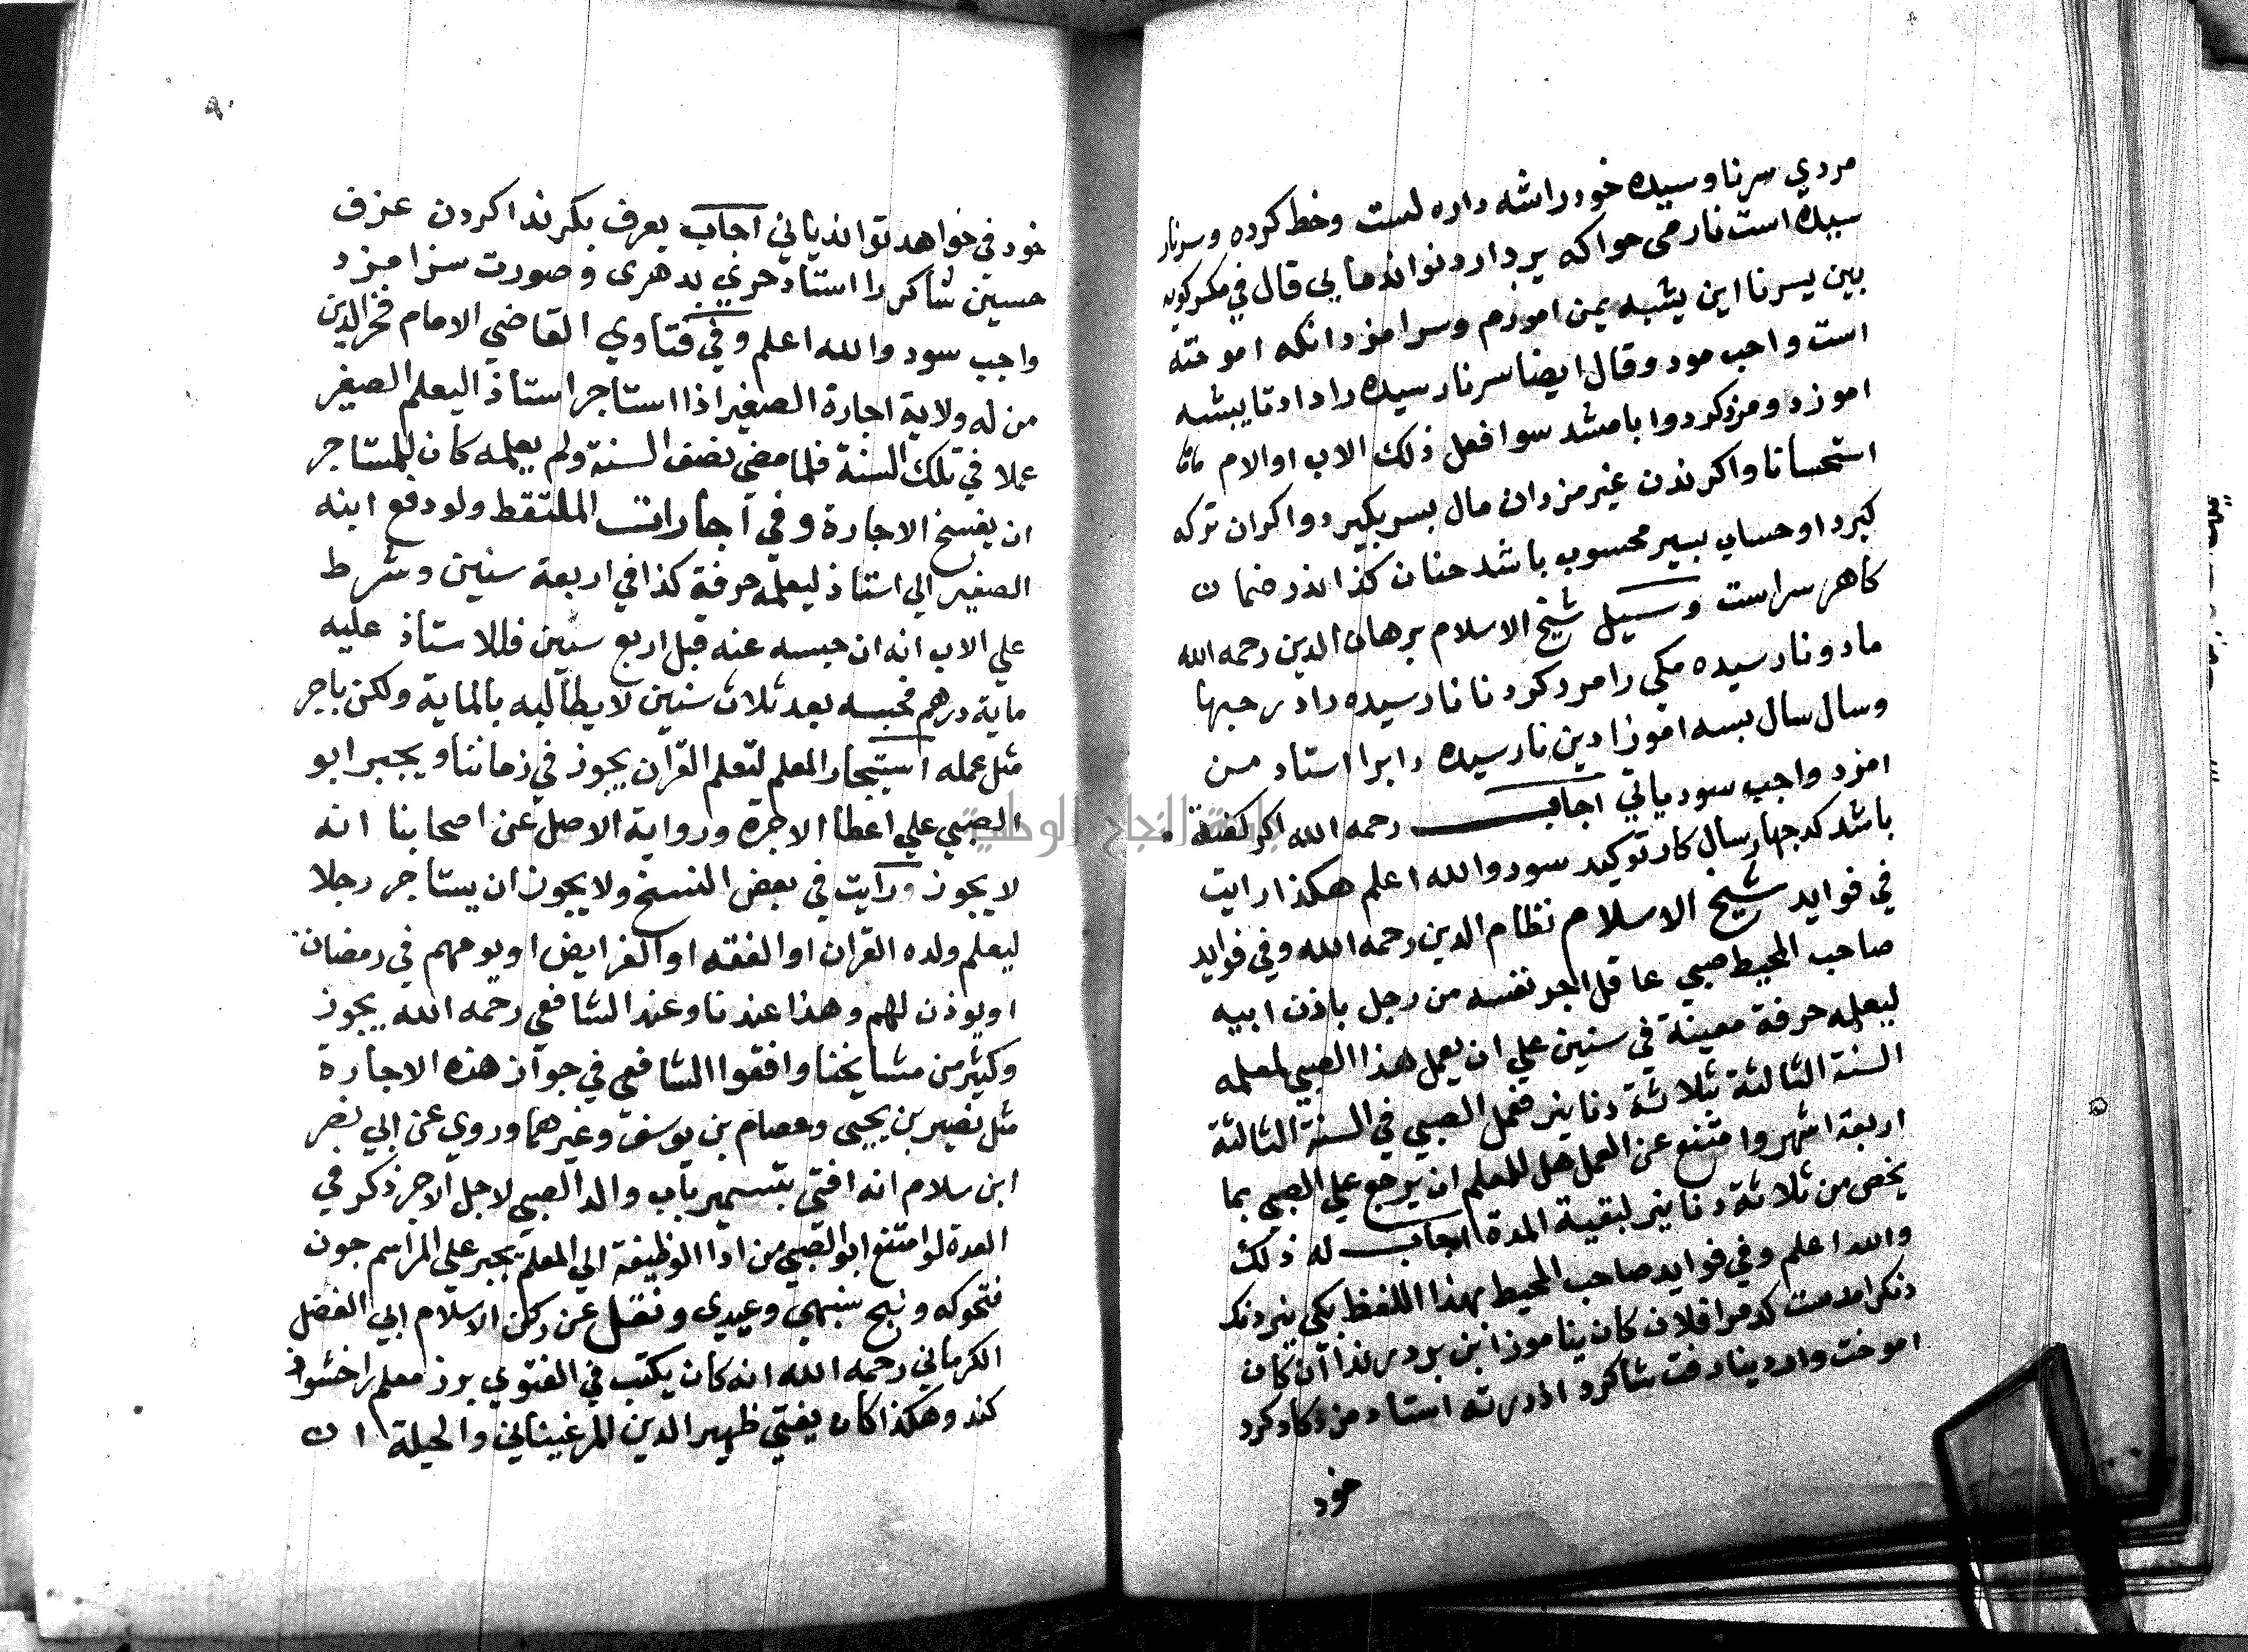 مردي سرنا وسيده خود را شه داره لست وخط كرده وسرنار
سيده است نار مى حوا كه بردارد نواند ما يى قال في
بين يسرنا اين يشبه بمن اموزم وسرا مزد انكه اموخته
است واجب مود وقال ايضا سرنار سيده را داد تا يبشه
اموزد ومزد كرد وا بامشد سوا فعل ذلك الاب او الام
استحسانا واكر ندن غير مزدان مال بسر بكيرد واكران تركه
كيرد او حساب بسير محسوب باشد حنان كذا اندر ضمان
كاهر سراست وسيل شيخ الاسلام برهان الدين رحمه الله
مادو نارسيده مكي را مرد كرد تا نارسيده داد
وسال سال بسه اموزا دين نارسيده را برا استاد من
امزد واجب سود ياتي اجاب رحمه الله اكر كفته
باشد كه جهار سال كار توكيد سود والله اعلم هكذا رايت
في فوايد شيخ الاسلام نظام الدين رحمه الله وفي فوايد
صاحب المحيط صبي عاقل اجر نفسه من رجل باذن ابيه
ليعلمه حرفة معينة في سنين علي ان يعمل هذا الصبي لمعلمه
السنة الثالثة ثلاثة دنانير فعمل الصبي في السنة الثالثة
اربعة اشهر وامتنع عن العمل هل للمعلم ان يرجع علي الصبي بما
يخص من ثلاثة دنانير لبقية المدة اجاب له ذلك
والله اعلم وفي فوايد صاحب المحيط بهذا اللفظ يكي
دنكر امدست كه مرا فلان كان بنا موز ابن
اموخت وارد ينار فت شاكرد استاد مزد كار كرد
خود
٩٠
خود في خواهد تواند ياني اجاب يعرف بكرند اكردن عزف
حسين شاكر را استاد حري بد هرى وصورت سزا مزد
واجب سود والله اعلم وفي فتاوي القاضي الامام فخر الدين
من له ولاية اجارة الصغير اذا استاجر استاذ اليعلم الصغير
عملا في تلك السنة فلما مضي نصف السنة ولم يعلمه كان للمستاجر
ان يفسخ الاجارة وفي اجارات الملتقط ولو دفع ابنه
الصغير الي استاذ ليعلمه حرفة كذا في اربعة سنين وشرط
علي الاب انه ان حبسه عنه قبل اربع سنين فللاستاذ عليه
ماية درهم فحبسه بعد ثلاث سنين لا يطالبه بالماية ولكن باجر
مثل عمله استيجار المعلم لتعلم القرآن يجوز في زماننا ويجبر ابو
الصبي علي اعطا الاجرة ورواية الاصل عن اصحابنا انه
لا يجوز ورايت في بعض النسخ ولا يجوز ان يستاجر رجلا
ليعلم ولده القران او الفقه او الفرايض او يومهم في رمضان
او يوذن لهم وهذا عندنا وعند الشافعي رحمه الله يجوز
وكثير من مشايخنا وافقوا الشافعي في جواز هذه الاجارة
مثل نصير بن يحيى وعصام بن يوسف وغيرهما وروي عن ابي نصر
ابن سلام انه افتي بتسمير باب والد الصبي لاجل الاجر ذكر في
العدة لو امتنع ابو الصبي من ادا الوظيفة الي المعلم يجبر علي المراسم جون
فتحوكه ونبح سنبهي وعيدى ونقل عن ركن الاسلام ابي الفضل
الكرماني رحمه الله انه كان يكتب في الفتوي بر ذر معلم را خشنود
كند وهكذا كان يفتي ظهير الدين المرغيناني والحيلة ان
جامعة النجاح الوطنية